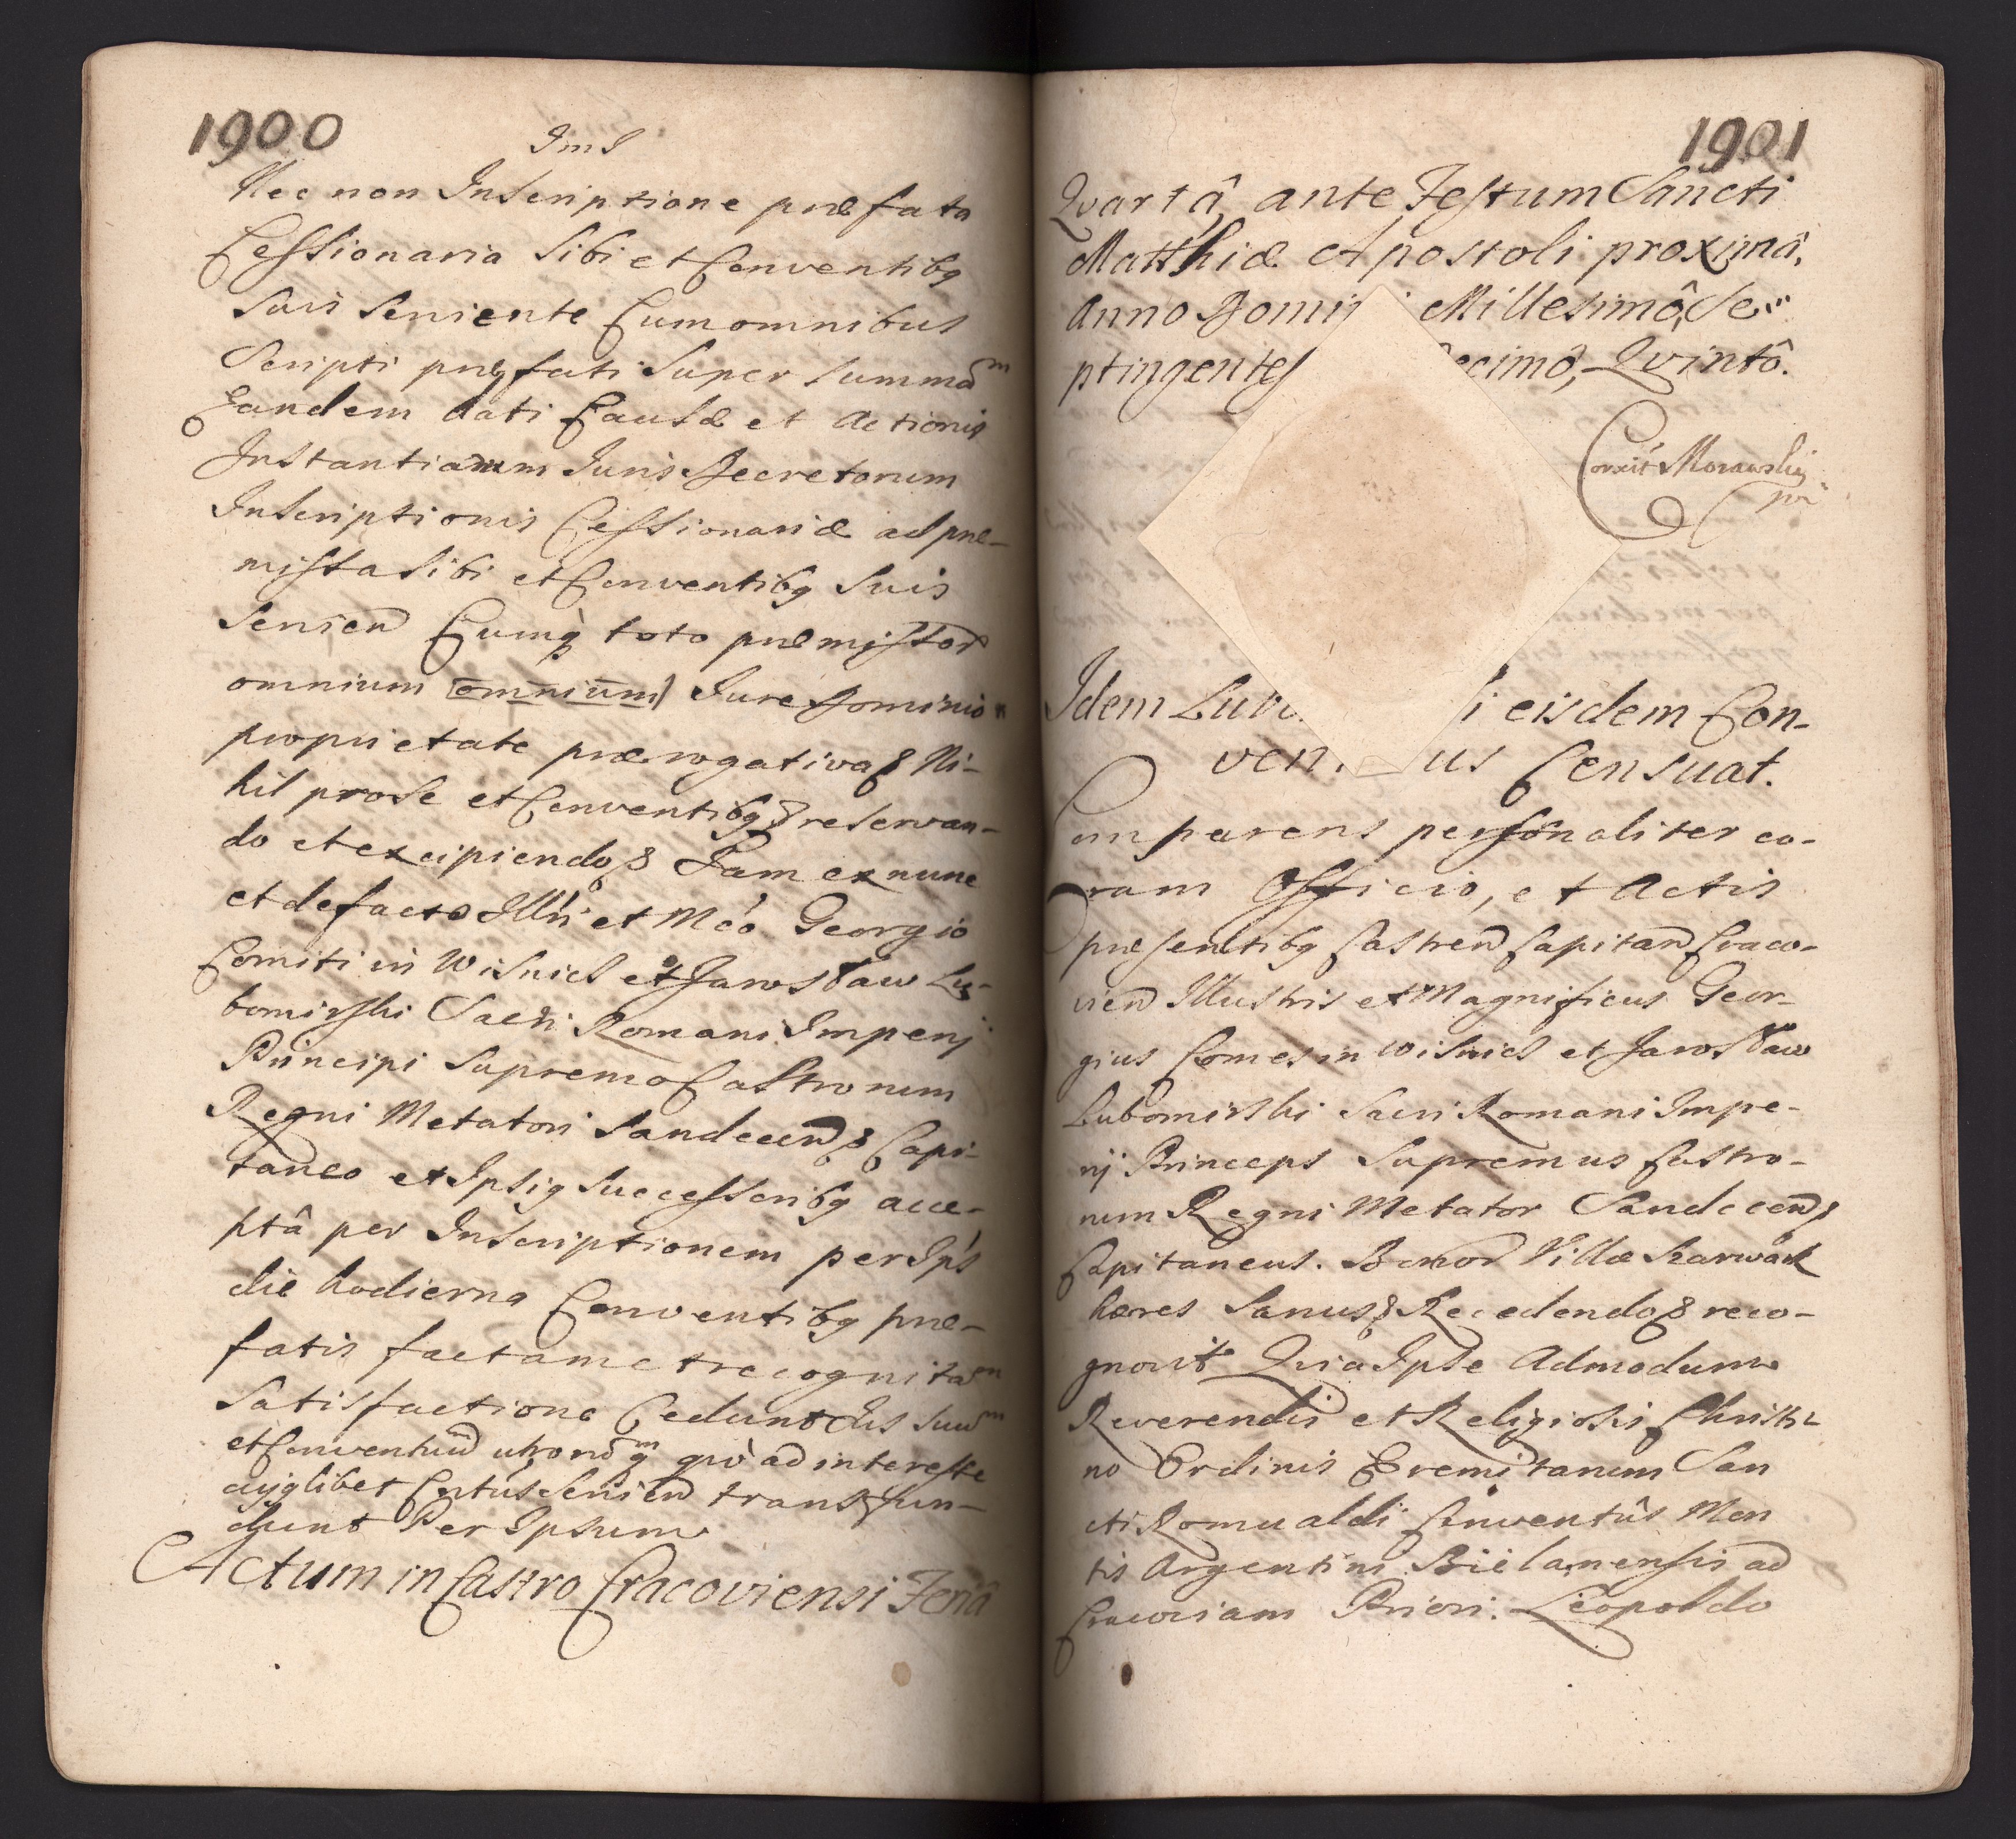 1900
Ims
Nec non Inscriptione præfata
Cessionaria Sibi et Conventibq
Suis Seruiente Cum omnibus
Scripti præfati Super Summam
Eandem dati Causæ et Actionis
Instantiarum Juris Decretorum
Inscriptionis Cessionariæ ad præ-
missa Sibi et Conventibq Suis
Seruien Cumq toto præmissor
omnium (omnium) Jure Dominio
proprietate prærogativa & Ni-
hil pro Se et Conventibq & reservan-
do et excipiendo & Jam ex nunc
et de facto Illri et Mco Georgio
Comiti in Wisnicz et Jarosław Lu-
bomirski Sacri Romani Imperij
Principi Supremo Castrorum
Regni Metatori Sandecen & Capi-
taneo et Ipsiq Successoribq acce-
ptâ per Inscriptionem per Ips
die hodierna Conventibq præ-
fatis factam et recognitam
Satisfactione Cedunt Jus Suum
et Conventuum utrorumq quò ad interesse
cuiqlibet Conventus Seruien transfun-
dunt Per Ipsum
Actum in Castro Cracoviensi Feriâ
1901
Qvartâ, ante Festum Sancti
Matthiæ Apostoli proximâ,
Anno Domi Millesimô, Se-
ptingentes ecimô, Qvintô.
Correxit Morawski
mp
Idem Lub i eisdem Con-
ven us Censuat.
Comparens personaliter co-
ram Officio, et Actis
præsentibq Castren Capitan Craco-
vien Illustris et Magnificus Geor-
gius Comes in Wisnicz et Jarosław
Lubomirski Sacri Romani Impe-
rij Princeps Supremus Castro-
rum Regni Metator Sandecen &
Capitaneus. Bonor Villæ Karwacz
hæres Sanus & Recedendo & reco-
gnovit Quia Ipse Admodum
Reverendis et Religiosis Christi-
no Ordinis Eremitarum San
cti Romualdi Conventûs Mon
tis Argentini Bielanensis ad
Cracoviam Priori. Leopoldo